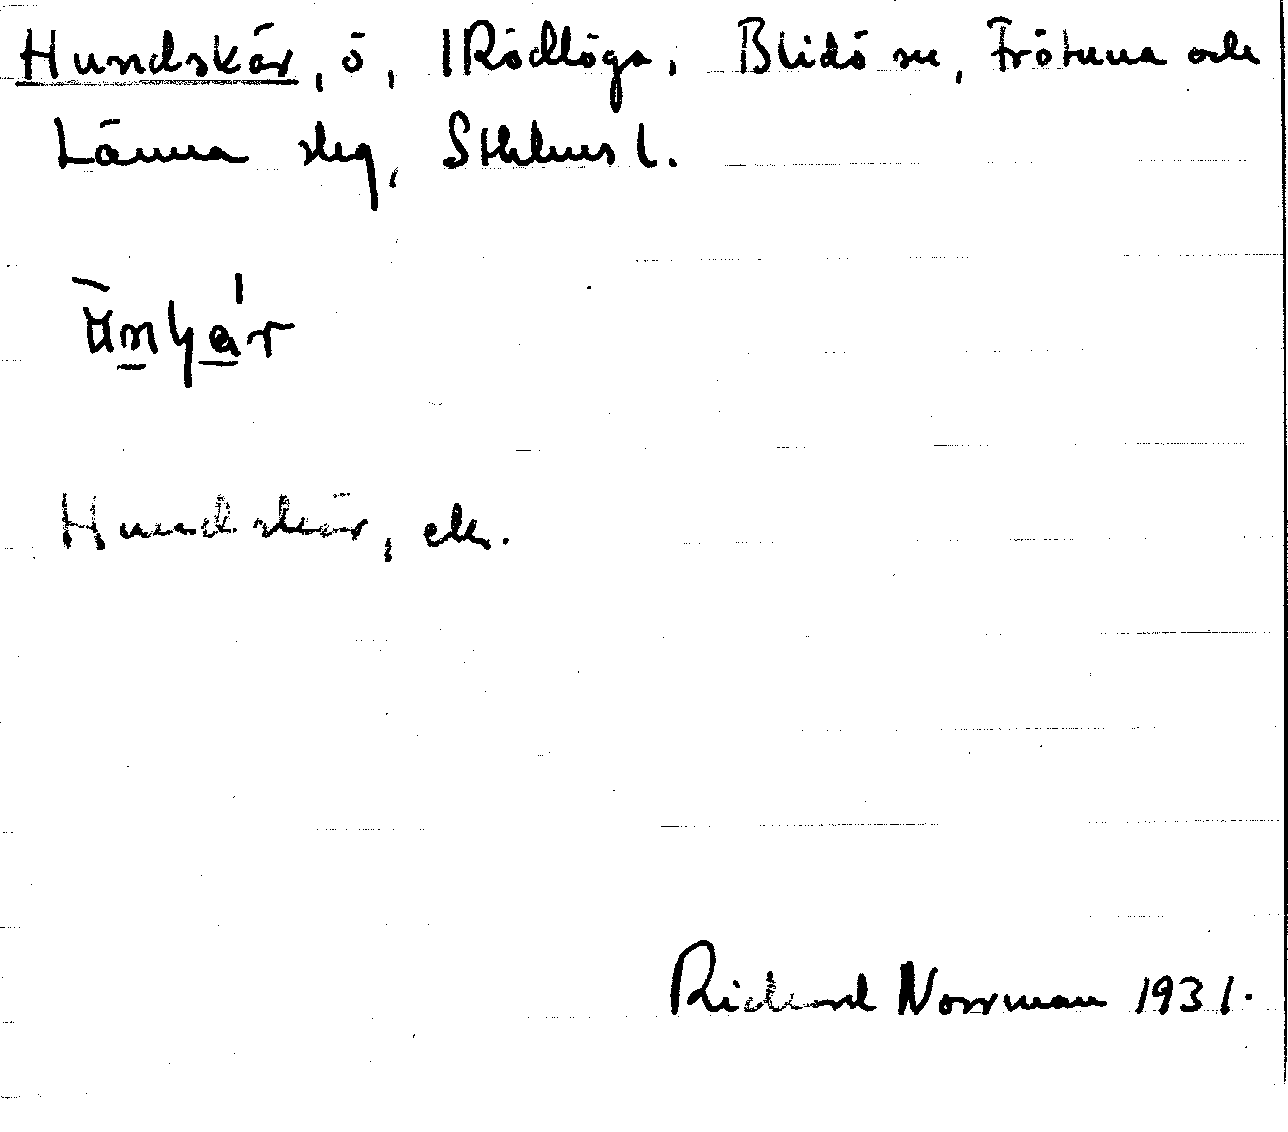 Hundskär, ö, Rödlöga, Blidö sn, Frötuna och
Länna slg, Sthlms l.
Hundskär, ek.
Richard Norrman 1931.